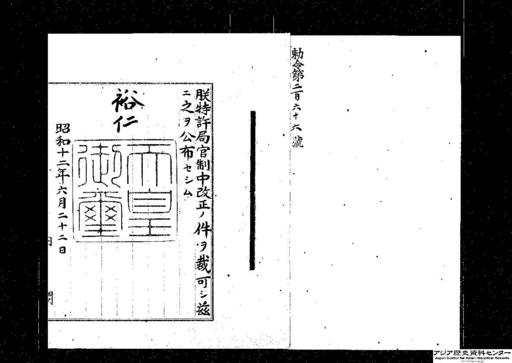 勅令第二百六十六號
朕特許局官制中改正ノ件ヲ裁可シ茲
ニ之ヲ公布セシム
裕仁
天皇御璽
昭和十二年六月二十二日
アジア歴史資料センター
Japan Center for Asian Historical Records